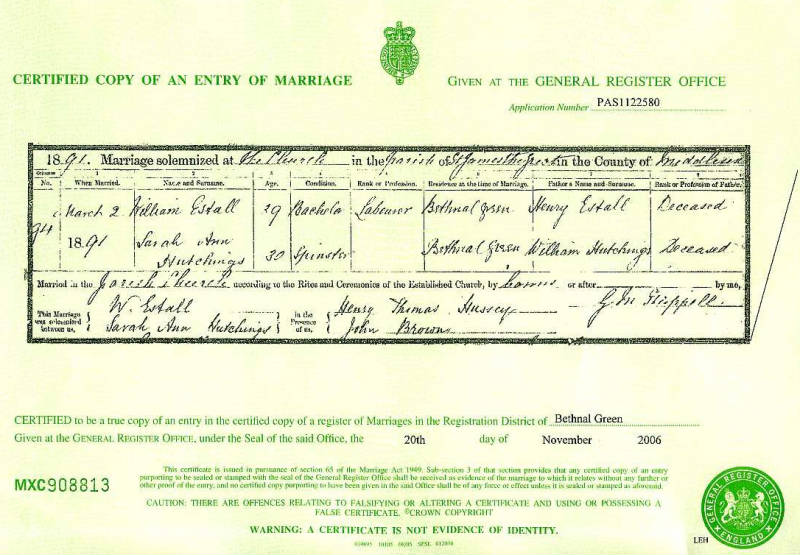 CERTIFIED COPY OF AN ENTRY OF MARRIAGE
GIVEN AT THE GENERAL REGISTER OFFICE
Application Number PAS1122580
1891. Marriage solemnized at the Church in the parish of St James the Great in the County of Middlesex
No. When Married. Name and Surname. Age. Condition. Rank or Profession. Residence at the time of Marriage. Father's Name and Surname. Rank or Profession of Father.
March 2 William Estall 29 Bachelor Labourer Bethnal Green Henry Estall Deceased
1891 Sarah Ann Hutchings 30 Spinster Bethnal Green William Hutchings Deceased
Married in the Parish Church according to the Rites and Ceremonies of the Established Church, by banns or after by me,
This Marriage was solemnized between us, W. Estall Sarah Ann Hutchings in the Presence of us, Henry Thomas Hussey John Brown
CERTIFIED to be a true copy of an entry in the certified copy of a register of Marriages in the Registration District of Bethnal Green
Given at the GENERAL REGISTER OFFICE, under the Seal of the said Office, the 20th day of November 2006
This certificate is issued in pursuance of section 65 of the Marriage Act 1949. Sub-section 3 of that section provides that any certified copy of an entry
purporting to be sealed or stamped with the seal of the General Register Office shall be received as evidence of the marriage to which it relates without any further or
other proof of the entry, and no certified copy purporting to have been given in the said Office shall be of any force or effect unless it is sealed or stamped as aforesaid.
MXC 908813
CAUTION: THERE ARE OFFENCES RELATING TO FALSIFYING OR ALTERING A CERTIFICATE AND USING OR POSSESSING A
FALSE CERTIFICATE. ©CROWN COPYRIGHT
WARNING: A CERTIFICATE IS NOT EVIDENCE OF IDENTITY.
LEH
GENERAL REGISTER OFFICE ENGLAND